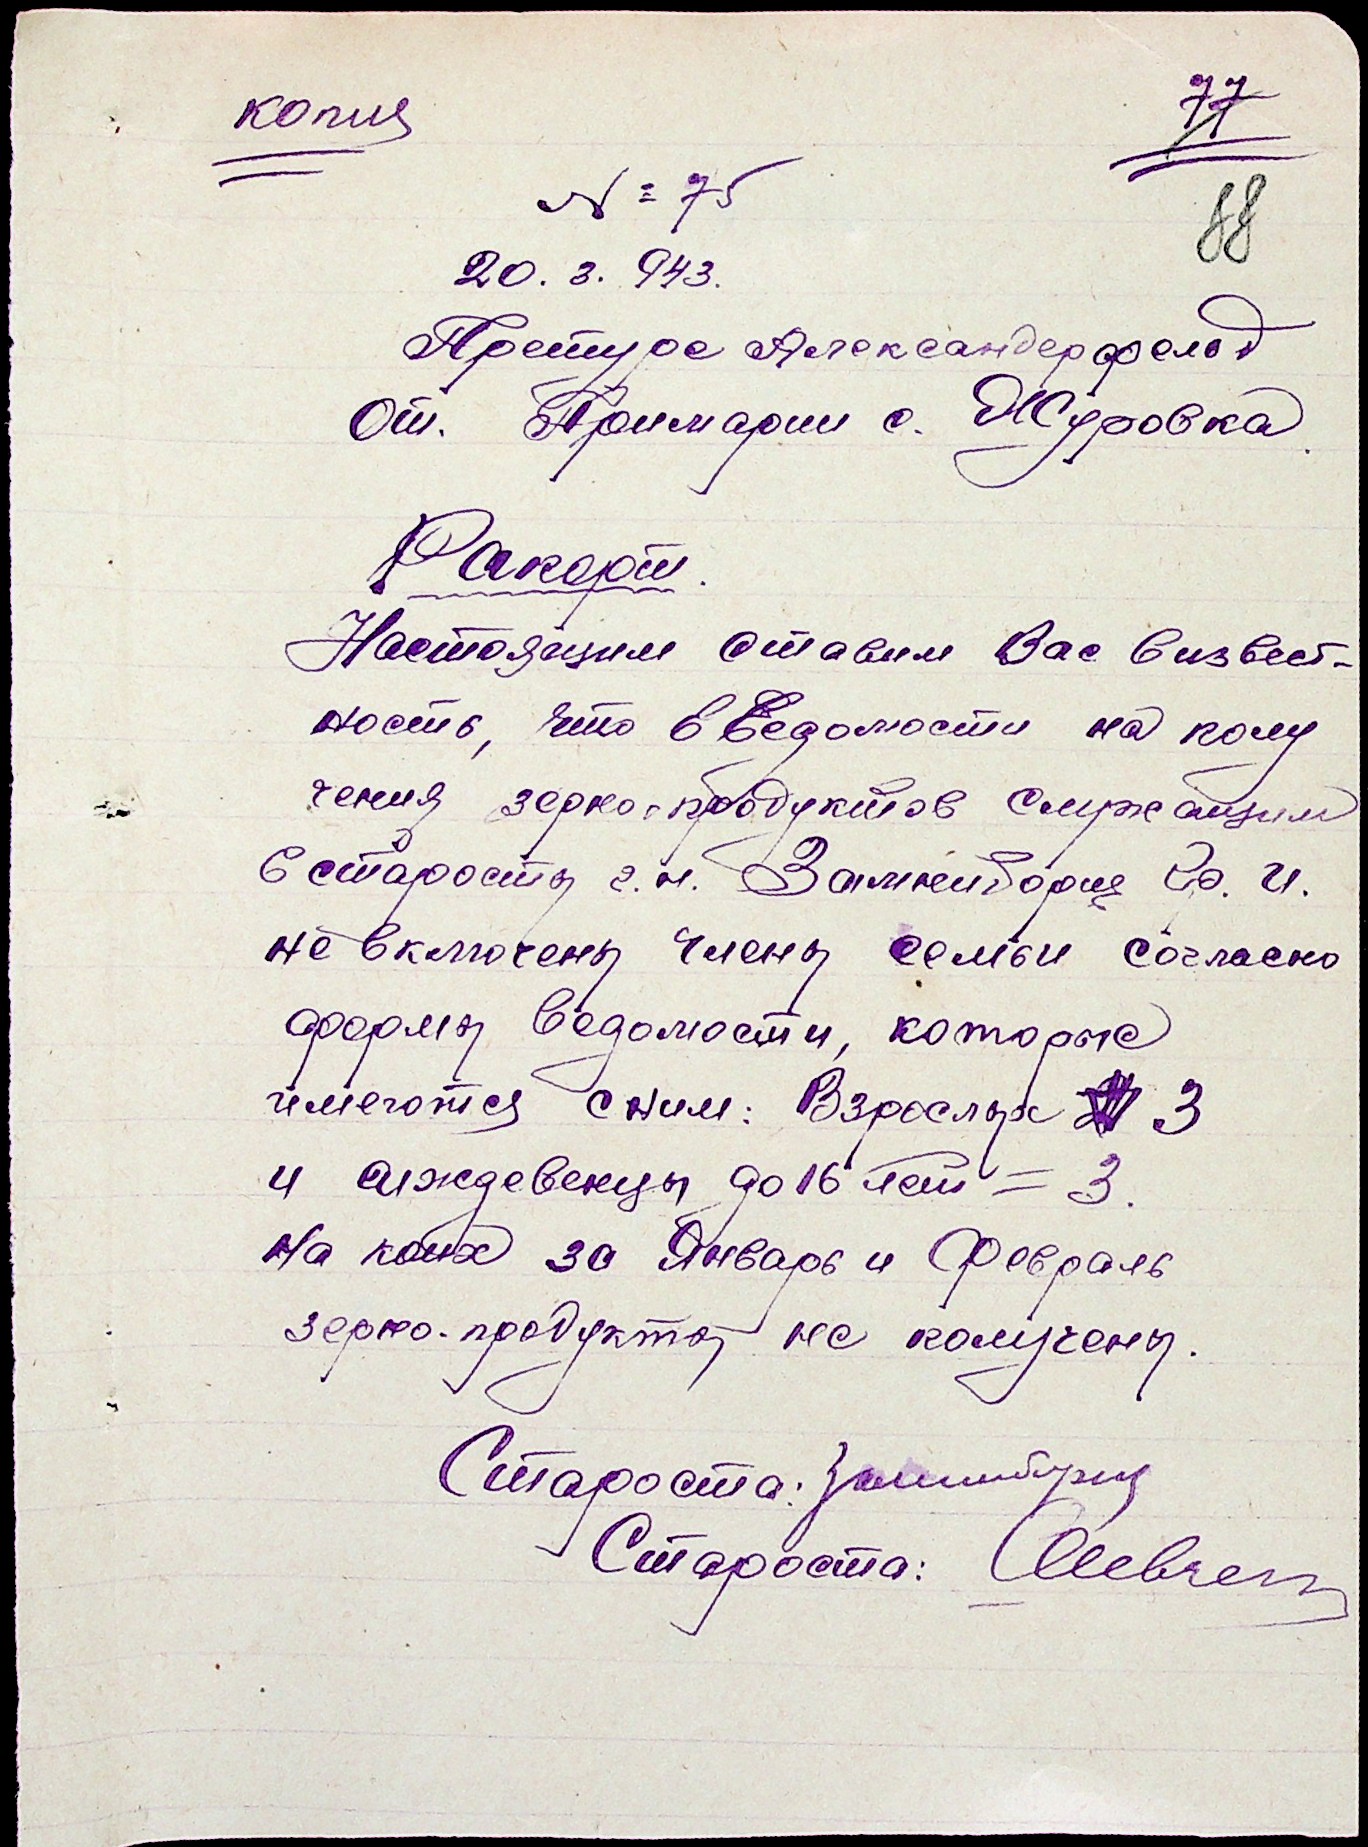 копия
77
№ = 75
88
20. 3. 943.
Претуре Александерфельд
От. Примарии с. Журовка
Рапорт.
Настоящим ставим Вас визвест-
ность, что в Ведомости на полу
чения зерно-продуктов служащим
в старосты г.н.
не включены члены семьи согласно
формы ведомости, которые
имеются сним: Взрослых 3
и иждевенцы до 16 лет = 3.
На коих за Январь и Февраль
зерно-продукты не получены.
Староста:
Староста: